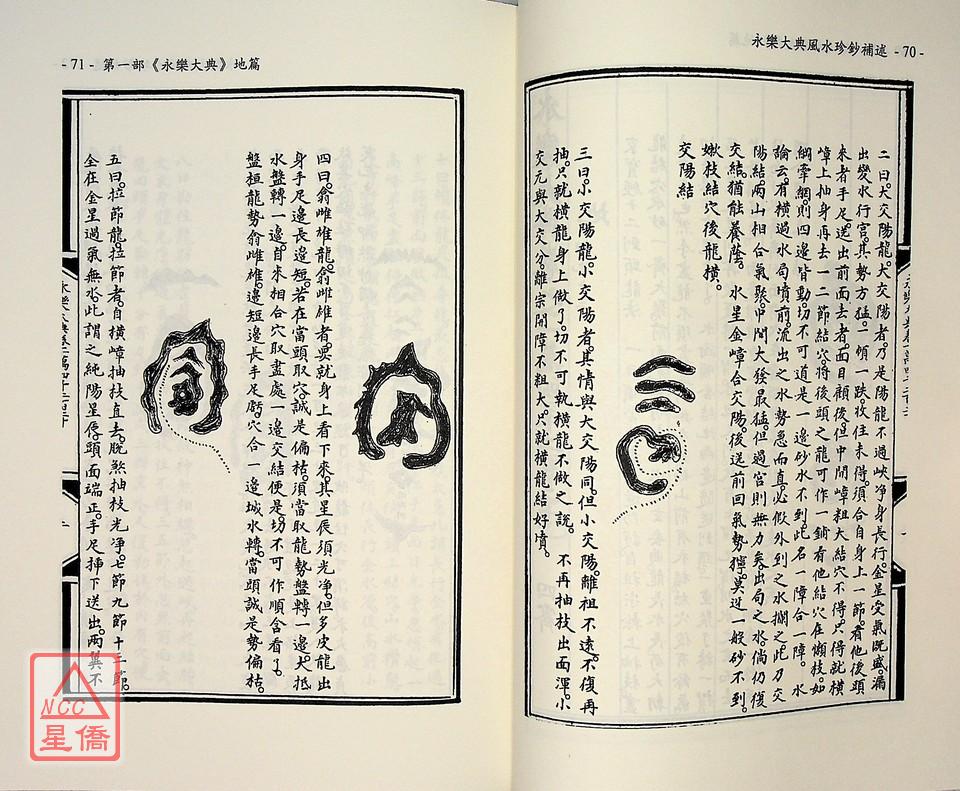 永樂大典風水珍鈔補述 - 70 -
二曰大交陽龍大交陽者乃是陽龍不過峽淨身長行金星受氣既盛漏
出變水行宮其勢方猛一頓一跌收住未得須合自身上一節看他後頭
來者手足送出前面去者面目顧後但中間嶂粗大結穴不得只得就橫
嶂上抽身再去一二節結穴將後頭之龍可作一銷看他結穴在懶枝如
綱牽網則四邊皆動切不可道是一邊砂水不到此名一障合一障 水
論云有橫過水局墳前流出之水勢急而直必假外到之水攔之此乃交
陽結兩山相合氣聚中間大發最猛但過宮則無力矣出局之水倘仍復
交結猶能養蔭 水星金嶂合交陽後送前回氣勢獰莫逆一般砂不到
嫩枝結穴後龍橫
交陽結
三曰小交陽龍小交陽者其情與大交陽同但小交陽離祖不遠不復再
抽只就橫龍身上做了切不可執橫龍不做之說 不再抽枝出面渾小
交元與大交分離宗開障不粗大只就橫龍結好墳
- 71 - 第一部《永樂大典》地篇
四曰翕雌雄龍翕雌雄者要就身上看下來其星辰須光淨但多皮龍出
身手足邊長邊短若在當頭取穴誠是偏枯須當取龍勢盤轉一邊大抵
水盤轉一邊自來相合穴取盡處一邊交結便是切不可作順含看了
盤桓龍勢翕雌雄邊短邊長手足虧穴合一邊城水轉當頭誠是勢偏枯
五曰拉節龍拉節者自橫嶂抽枝直去脫煞抽枝光淨七節九節十二節
全在金星過氣無水此謂之純陽星辰頭面端正手足揷下送出兩翼不
NCC
星僑